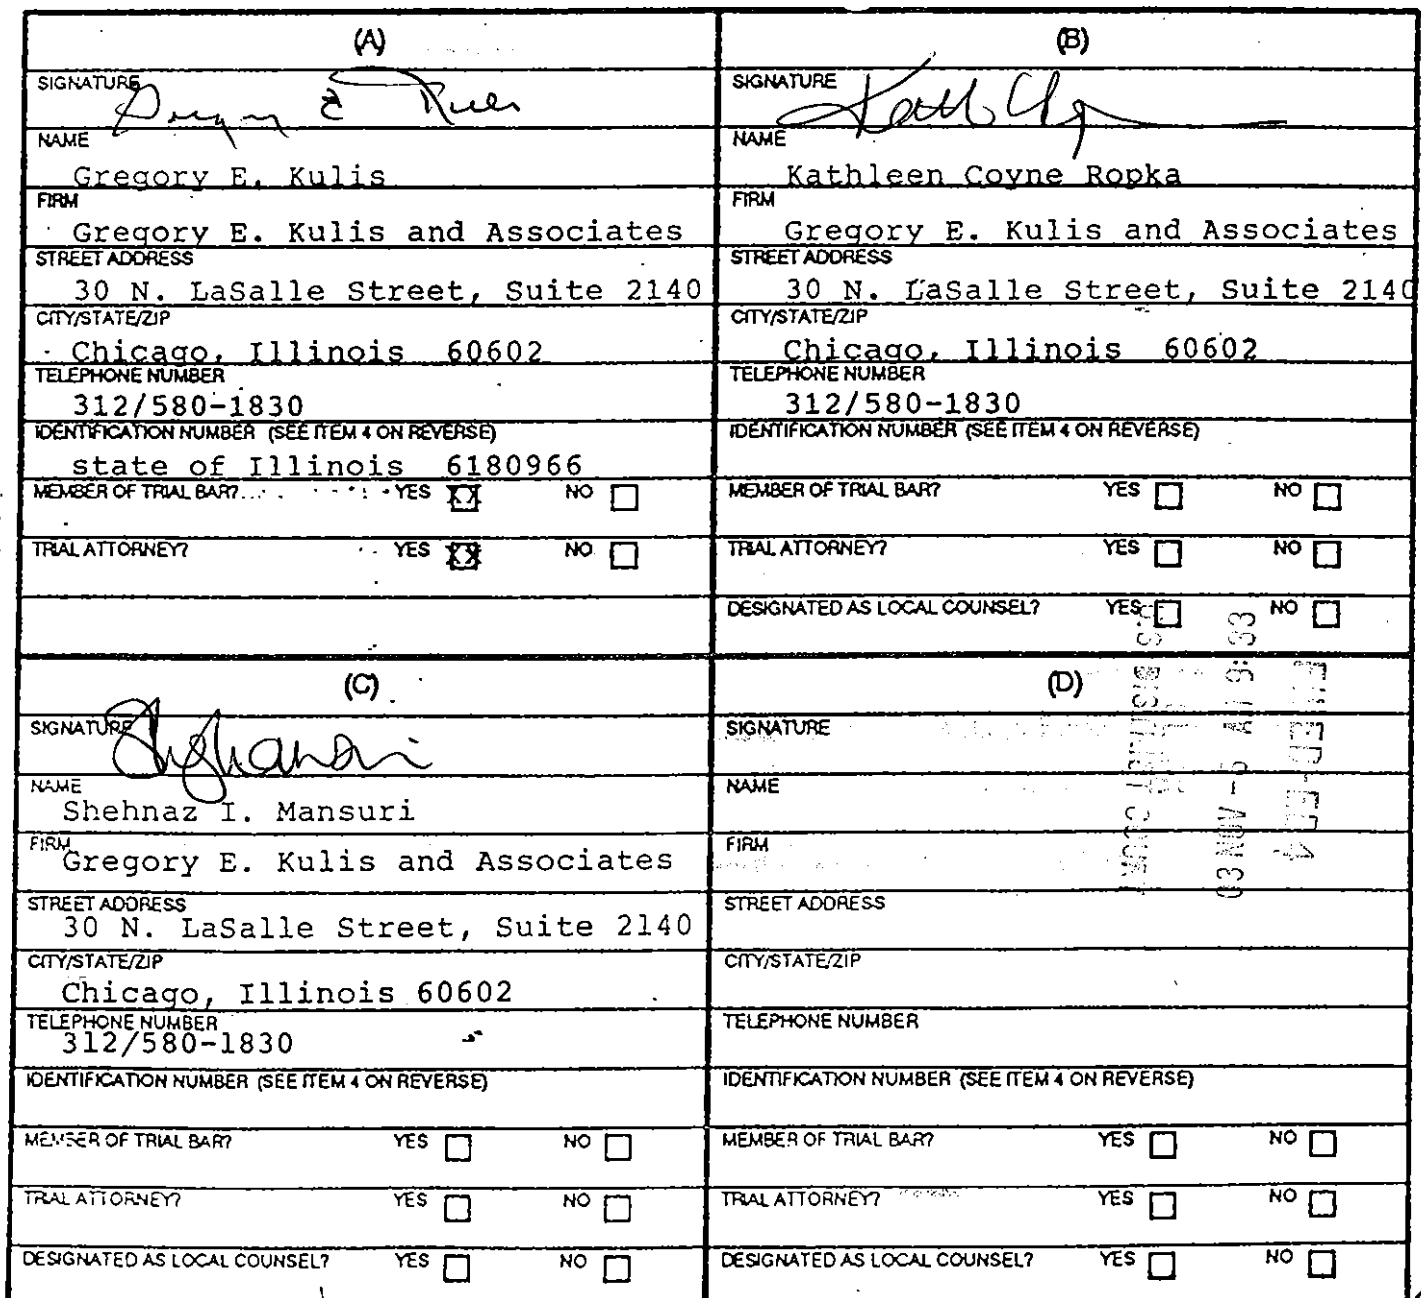 (A)
SIGNATURE
NAME
Gregory E. Kulis
FIRM
Gregory E. Kulis and Associates
STREET ADDRESS
30 N. LaSalle Street, Suite 2140
CITY/STATE/ZIP
Chicago, Illinois 60602
TELEPHONE NUMBER
312/580-1830
IDENTIFICATION NUMBER (SEE ITEM 4 ON REVERSE)
state of Illinois 6180966
MEMBER OF TRIAL BAR? YES XX NO
TRIAL ATTORNEY? YES XX NO
(B)
SIGNATURE
NAME
Kathleen Coyne Ropka
FIRM
Gregory E. Kulis and Associates
STREET ADDRESS
30 N. LaSalle Street, Suite 2140
CITY/STATE/ZIP
Chicago, Illinois 60602
TELEPHONE NUMBER
312/580-1830
IDENTIFICATION NUMBER (SEE ITEM 4 ON REVERSE)
MEMBER OF TRIAL BAR? YES NO
TRIAL ATTORNEY? YES NO
DESIGNATED AS LOCAL COUNSEL? YES NO
(C)
SIGNATURE
NAME
Shehnaz I. Mansuri
FIRM
Gregory E. Kulis and Associates
STREET ADDRESS
30 N. LaSalle Street, Suite 2140
CITY/STATE/ZIP
Chicago, Illinois 60602
TELEPHONE NUMBER
312/580-1830
IDENTIFICATION NUMBER (SEE ITEM 4 ON REVERSE)
MEMBER OF TRIAL BAR? YES NO
TRIAL ATTORNEY? YES NO
DESIGNATED AS LOCAL COUNSEL? YES NO
(D)
SIGNATURE
NAME
FIRM
STREET ADDRESS
CITY/STATE/ZIP
TELEPHONE NUMBER
IDENTIFICATION NUMBER (SEE ITEM 4 ON REVERSE)
MEMBER OF TRIAL BAR? YES NO
TRIAL ATTORNEY? YES NO
DESIGNATED AS LOCAL COUNSEL? YES NO
03 NOV -5 AM 9:33